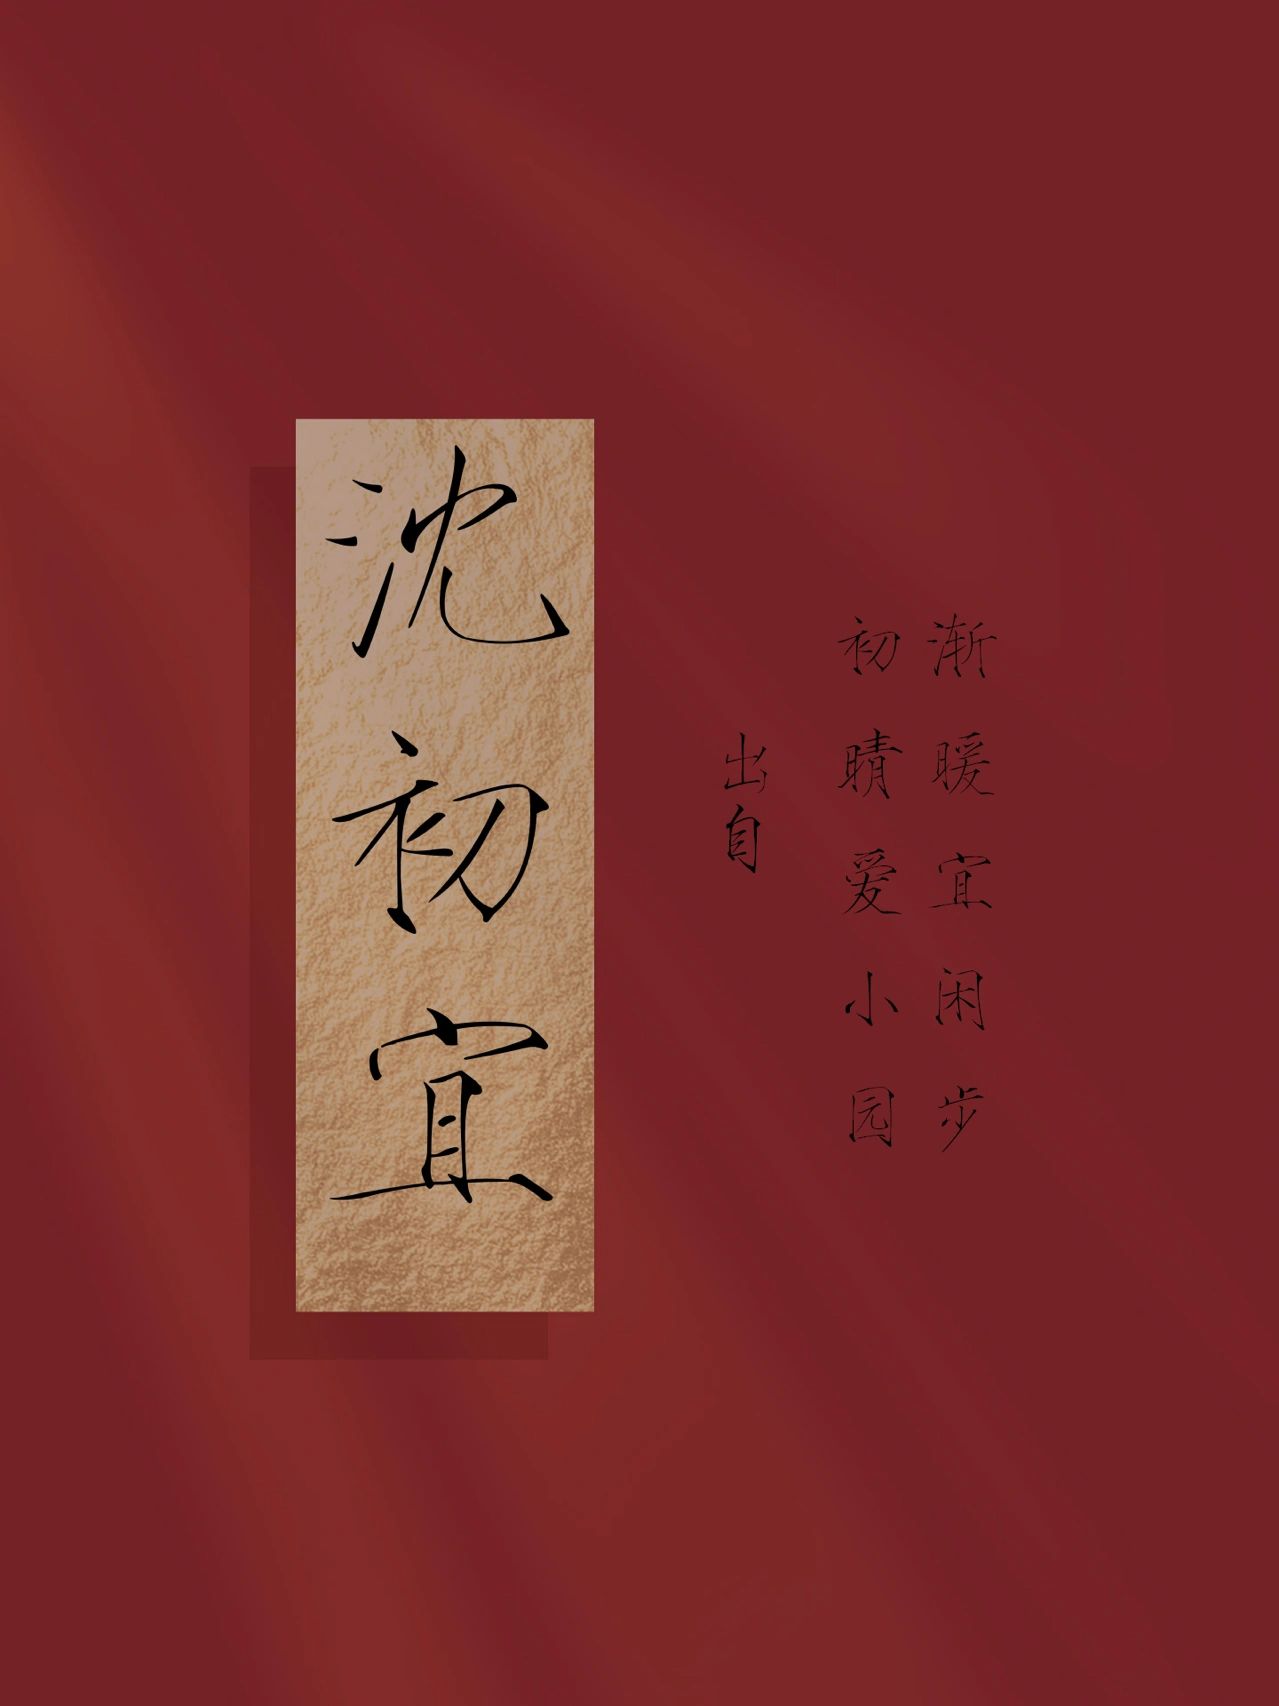 渐暖宜闲步
初晴爱小园
出自
沈初宜